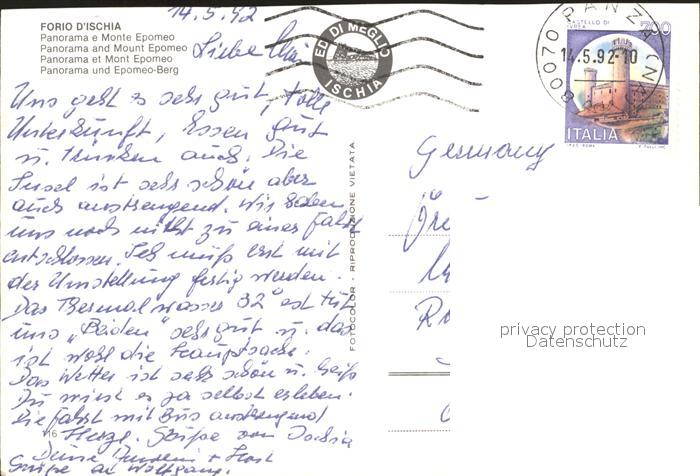 14.5.92
FORIO D'ISCHIA
Panorama e Monte Epomeo
Panorama and Mount Epomeo
Panorama et Mont Epomeo
Panorama und Epomeo-Berg
Liebe
ED. DI MEGLIO
ISCHIA
80070 PANZA (NA)
14.5.92-10
CASTELLO DI
IVREA
700
ITALIA
Uns geht es sehr gut, tolle
Unterkunft, Essen gut
u. Trinken auch. Die
Insel ist sehr schön aber
auch anstrengend. Wir haben
uns noch nicht zu einer Fahrt
entschlossen. Ich muß erst mit
der Umstellung fertig werden.
Das Thermalwasser 32° est tut
uns „Beiden" sehr gut u. das
ist wohl die Hauptsache.
Das Wetter ist sehr schön u. heiß
Du wirst es ja selbst erleben.
Die Fahrt mit Bus anstrengend
116 Herzl. Grüße von Ischia
Deine + Horst
Grüße an Wolfgang.
FOTOCOLOR - RIPRODUZIONE VIETATA
Germany
privacy protection
Datenschutz